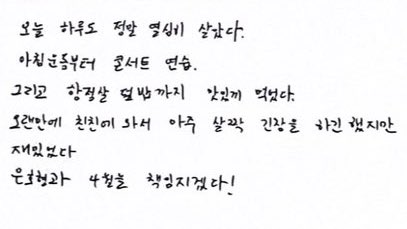 오늘 하루도 정말 열심히 살았다.
아침운동부터 콘서트 연습.
그리고 항정살 덮밥까지 맛있게 먹었다.
오랜만에 친친에 와서 아주 살짝 긴장을 하긴 했지만
재밌었다
윤호형과 4월을 책임지겠다!